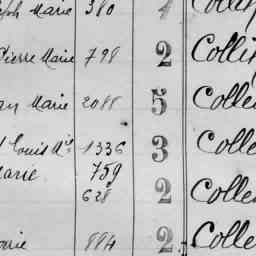 eph Marie 380 4 Collin
Pierre Marie 798 2 Collin
an Marie 2088 5 Colle
Louis M'e 1336 3 Colle
Marie 759
628 2 Colle
Marie 884 2 Colle